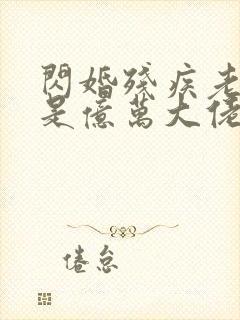 閃婚殘疾老
是億萬大佬
倦怠